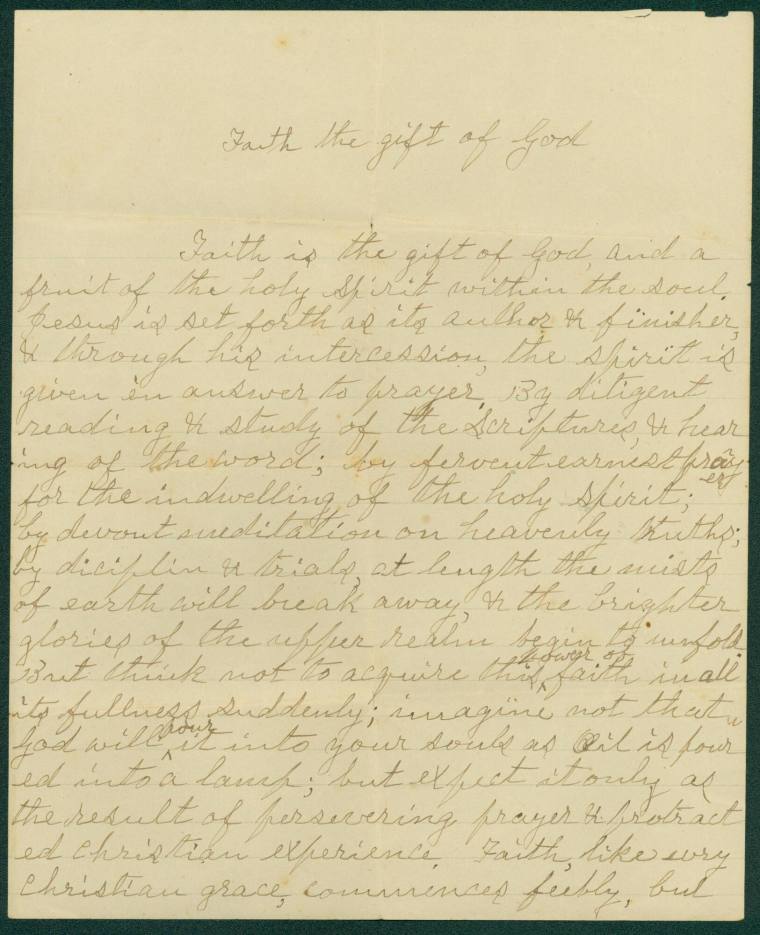 Faith the gift of God
Faith is the gift of God, and a
fruit of the holy spirit within the soul.
Jesus is set forth as its author & finisher,
& through his intercession, the spirit is
given in answer to prayer. By diligent
reading & study of the Scriptures, & hear
ing of the word; by fervent earnest pray
er
for the indwelling of the holy spirit;
by devout meditation on heavenly truths;
by diciplin & trials, at length the mists
of earth will break away, & the brighter
glories of the upper realm begin to unfold.
power of
But think not to acquire this faith in all
its fullness suddenly; imagine not that
pour
God will it into your souls as oil is pour
ed into a lamp; but expect it only as
the result of persevering prayer & protract
ed christian experience. Faith, like evry
christian grace, commences feebly, but